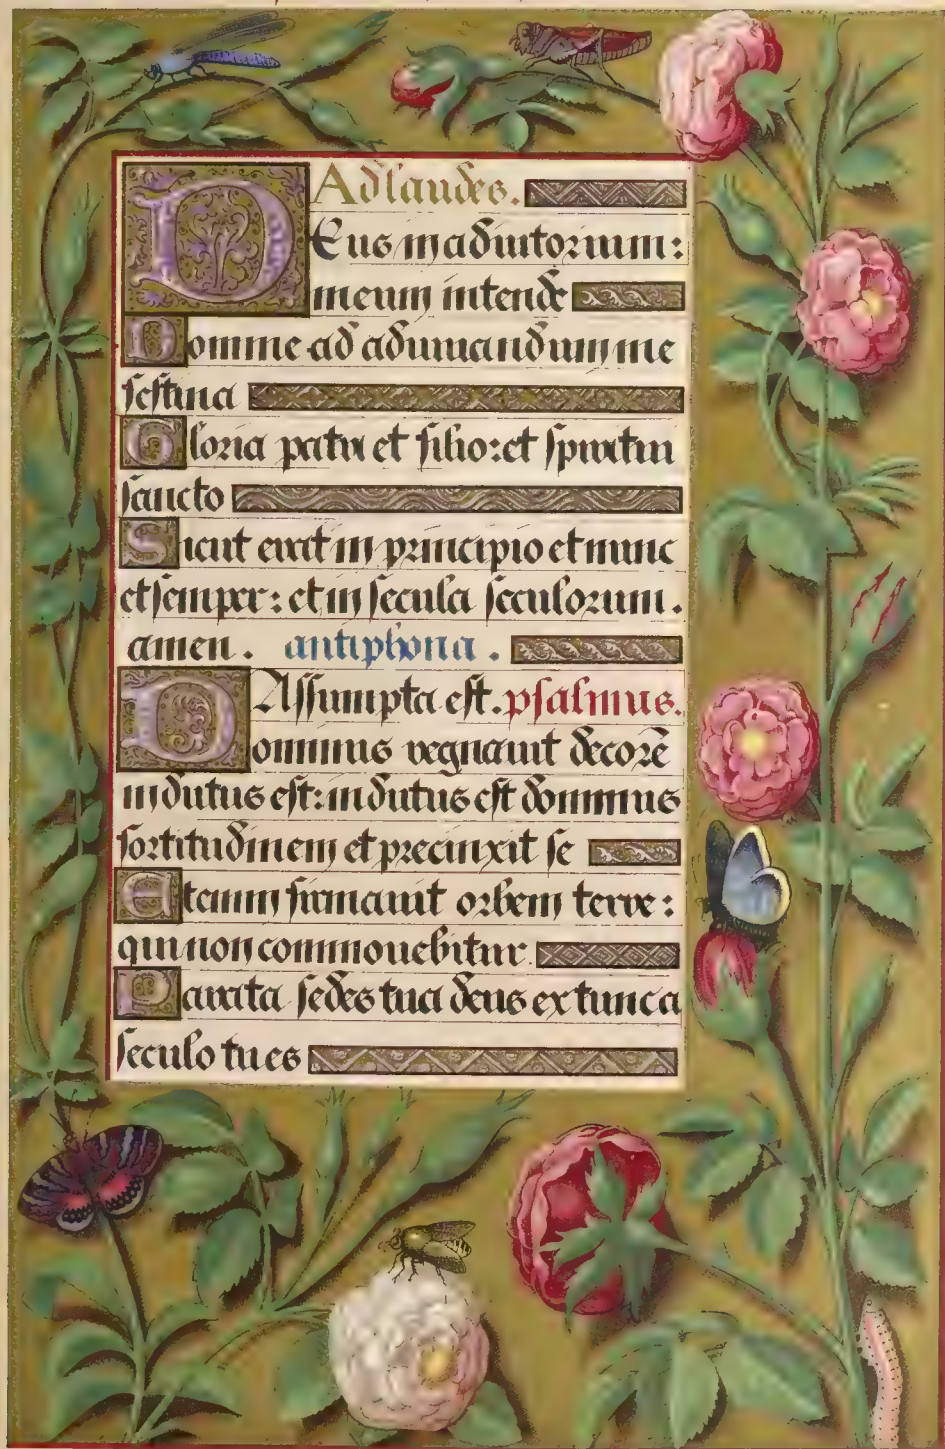 Ad laudes.
Deus in adiutorium:
meum intende
Domine ad adiuuandum me
festina
Gloria patri et filio: et spiritui
sancto
Sicut erat in principio et nunc
et semper: et in secula seculorum.
amen. antiphona.
Assumpta est. psalmus.
Dominus regnauit decorē
indutus est: indutus est dominus
fortitudinem et precinxit se
Etenim firmauit orbem terre:
qui non commouebitur
Parata sedes tua deus ex tunc a
seculo tu es